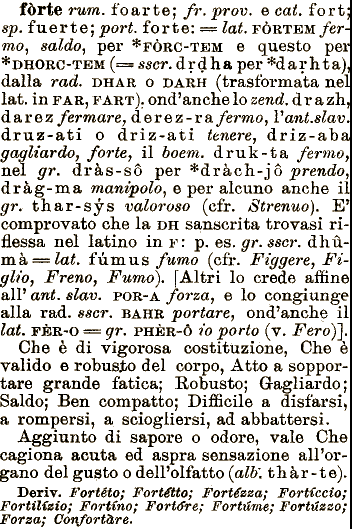 fòrte rum. foarte; fr. prov. e cat. fort;
sp. fuerte; port. forte: = lat. FÒRTEM fer-
mo, saldo, per *FÒRC-TEM e questo per
*DHORC-TEM (= sscr. dṛḍha per *darhta),
dalla rad. DHAR o DARH (trasformata nel
lat. in FAR, FART), ond'anche lo zend. drazh,
darez fermare, derez-ra fermo, l'ant.slav.
druz-ati o driz-ati tenere, driz-aba
gagliardo, forte, il boem. druk-ta fermo,
nel gr. dràs-sô per *dràch-jô prendo,
dràg-ma manipolo, e per alcuno anche il
gr. thar-sỳs valoroso (cfr. Strenuo). E'
comprovato che la DH sanscrita trovasi ri-
flessa nel latino in F: p. es. gr. sscr. dhû-
mà = lat. fúmus fumo (cfr. Figgere, Fi-
glio, Freno, Fumo). [Altri lo crede affine
all'ant. slav. POR-A forza, e lo congiunge
alla rad. sscr. BAHR portare, ond'anche il
lat. FÈR-O = gr. PHÈR-Ô io porto (v. Fero)].
Che è di vigorosa costituzione, Che è
valido e robusto del corpo, Atto a soppor-
tare grande fatica; Robusto; Gagliardo;
Saldo; Ben compatto; Difficile a disfarsi,
a rompersi, a sciogliersi, ad abbattersi.
Aggiunto di sapore o odore, vale Che
cagiona acuta ed aspra sensazione all'or-
gano del gusto o dell'olfatto (alb. thàr-te).
Deriv. Fortéto; Fortétto; Fortézza; Fortíccio;
Fortilízio; Fortíno; Fortóre; Fortúme; Fortúzzo;
Forza; Confortàre.